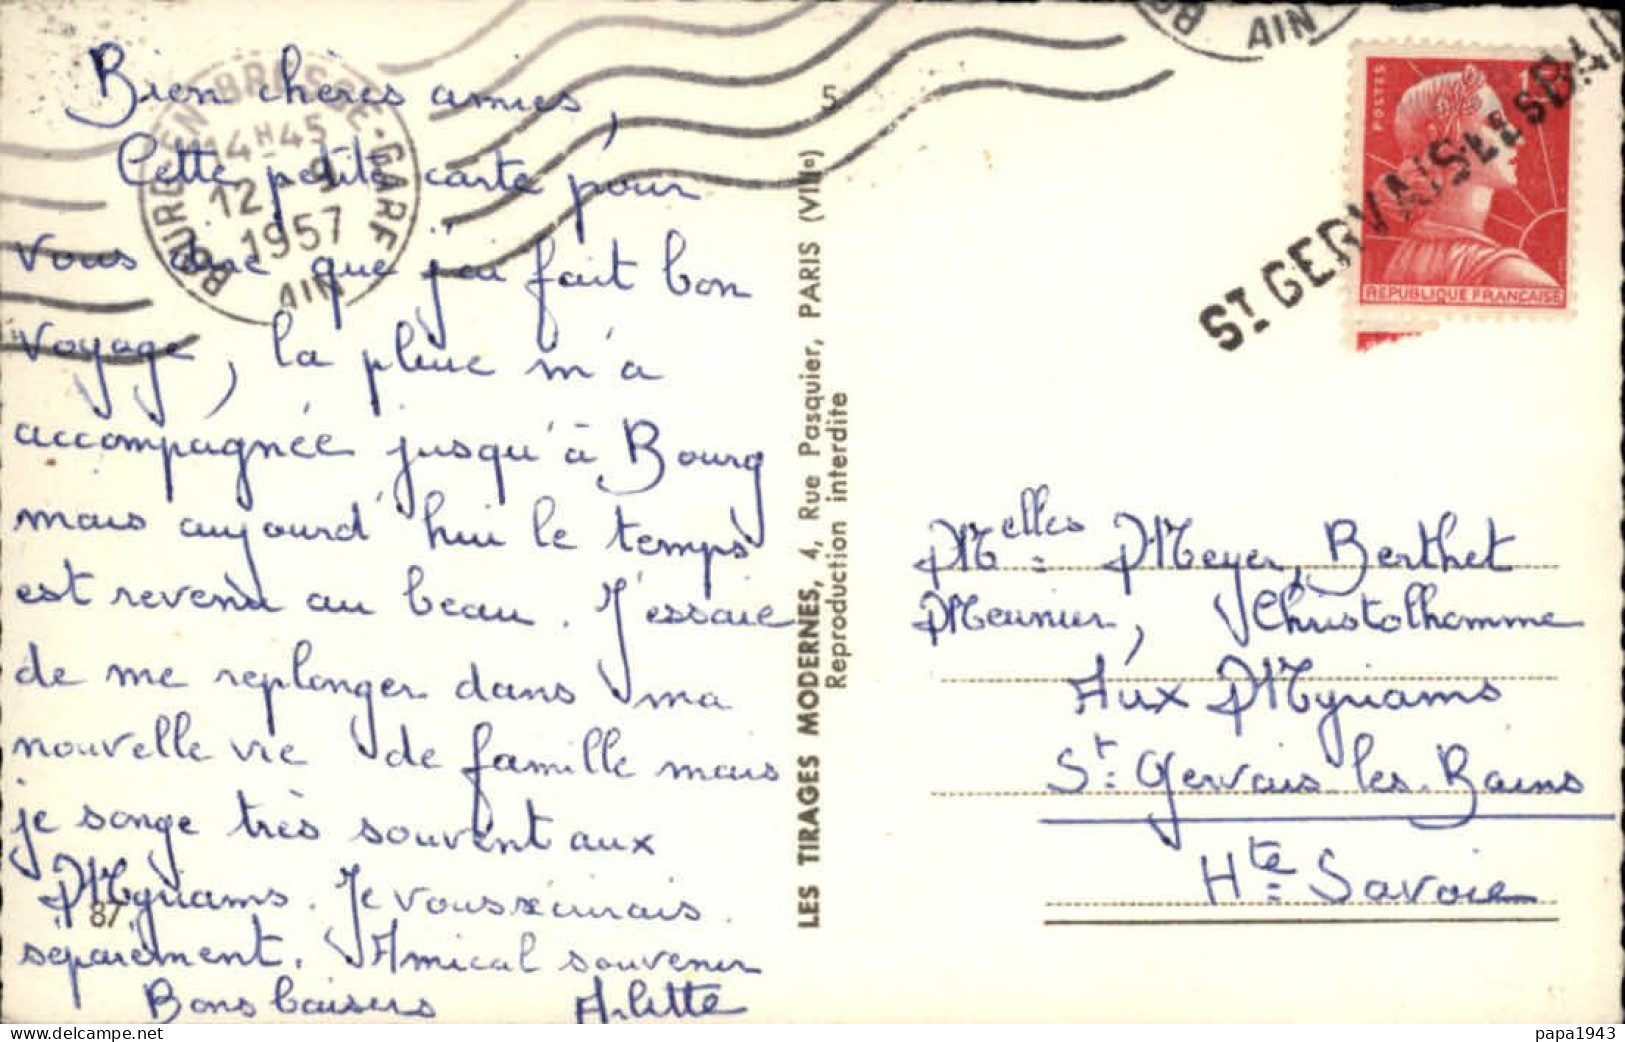 Bien chères amies,
Cette petite carte pour
vous dire que j'ai fait bon
voyage, la pluie m'a
accompagnée jusqu'à Bourg
mais aujourd'hui le temps
est revenu au beau. J'essaie
de me replonger dans ma
nouvelle vie de famille mais
je songe très souvent aux
Myriams. Je vous écrirais
séparément. Amical souvenir
Bons baisers Arlette
87
BOURG-EN-BRESSE-GARE
14H45
12-9
1957
AIN
5
LES TIRAGES MODERNES, 4, Rue Pasquier, PARIS (VIIIe)
Reproduction interdite
AIN
ST GERVAIS LES BAI
POSTES
REPUBLIQUE FRANCAISE
Melles Meyer, Berthet
Meunier, Christolhomme
Aux Myriams
St Gervais les Bains
Hte Savoie
papa1943